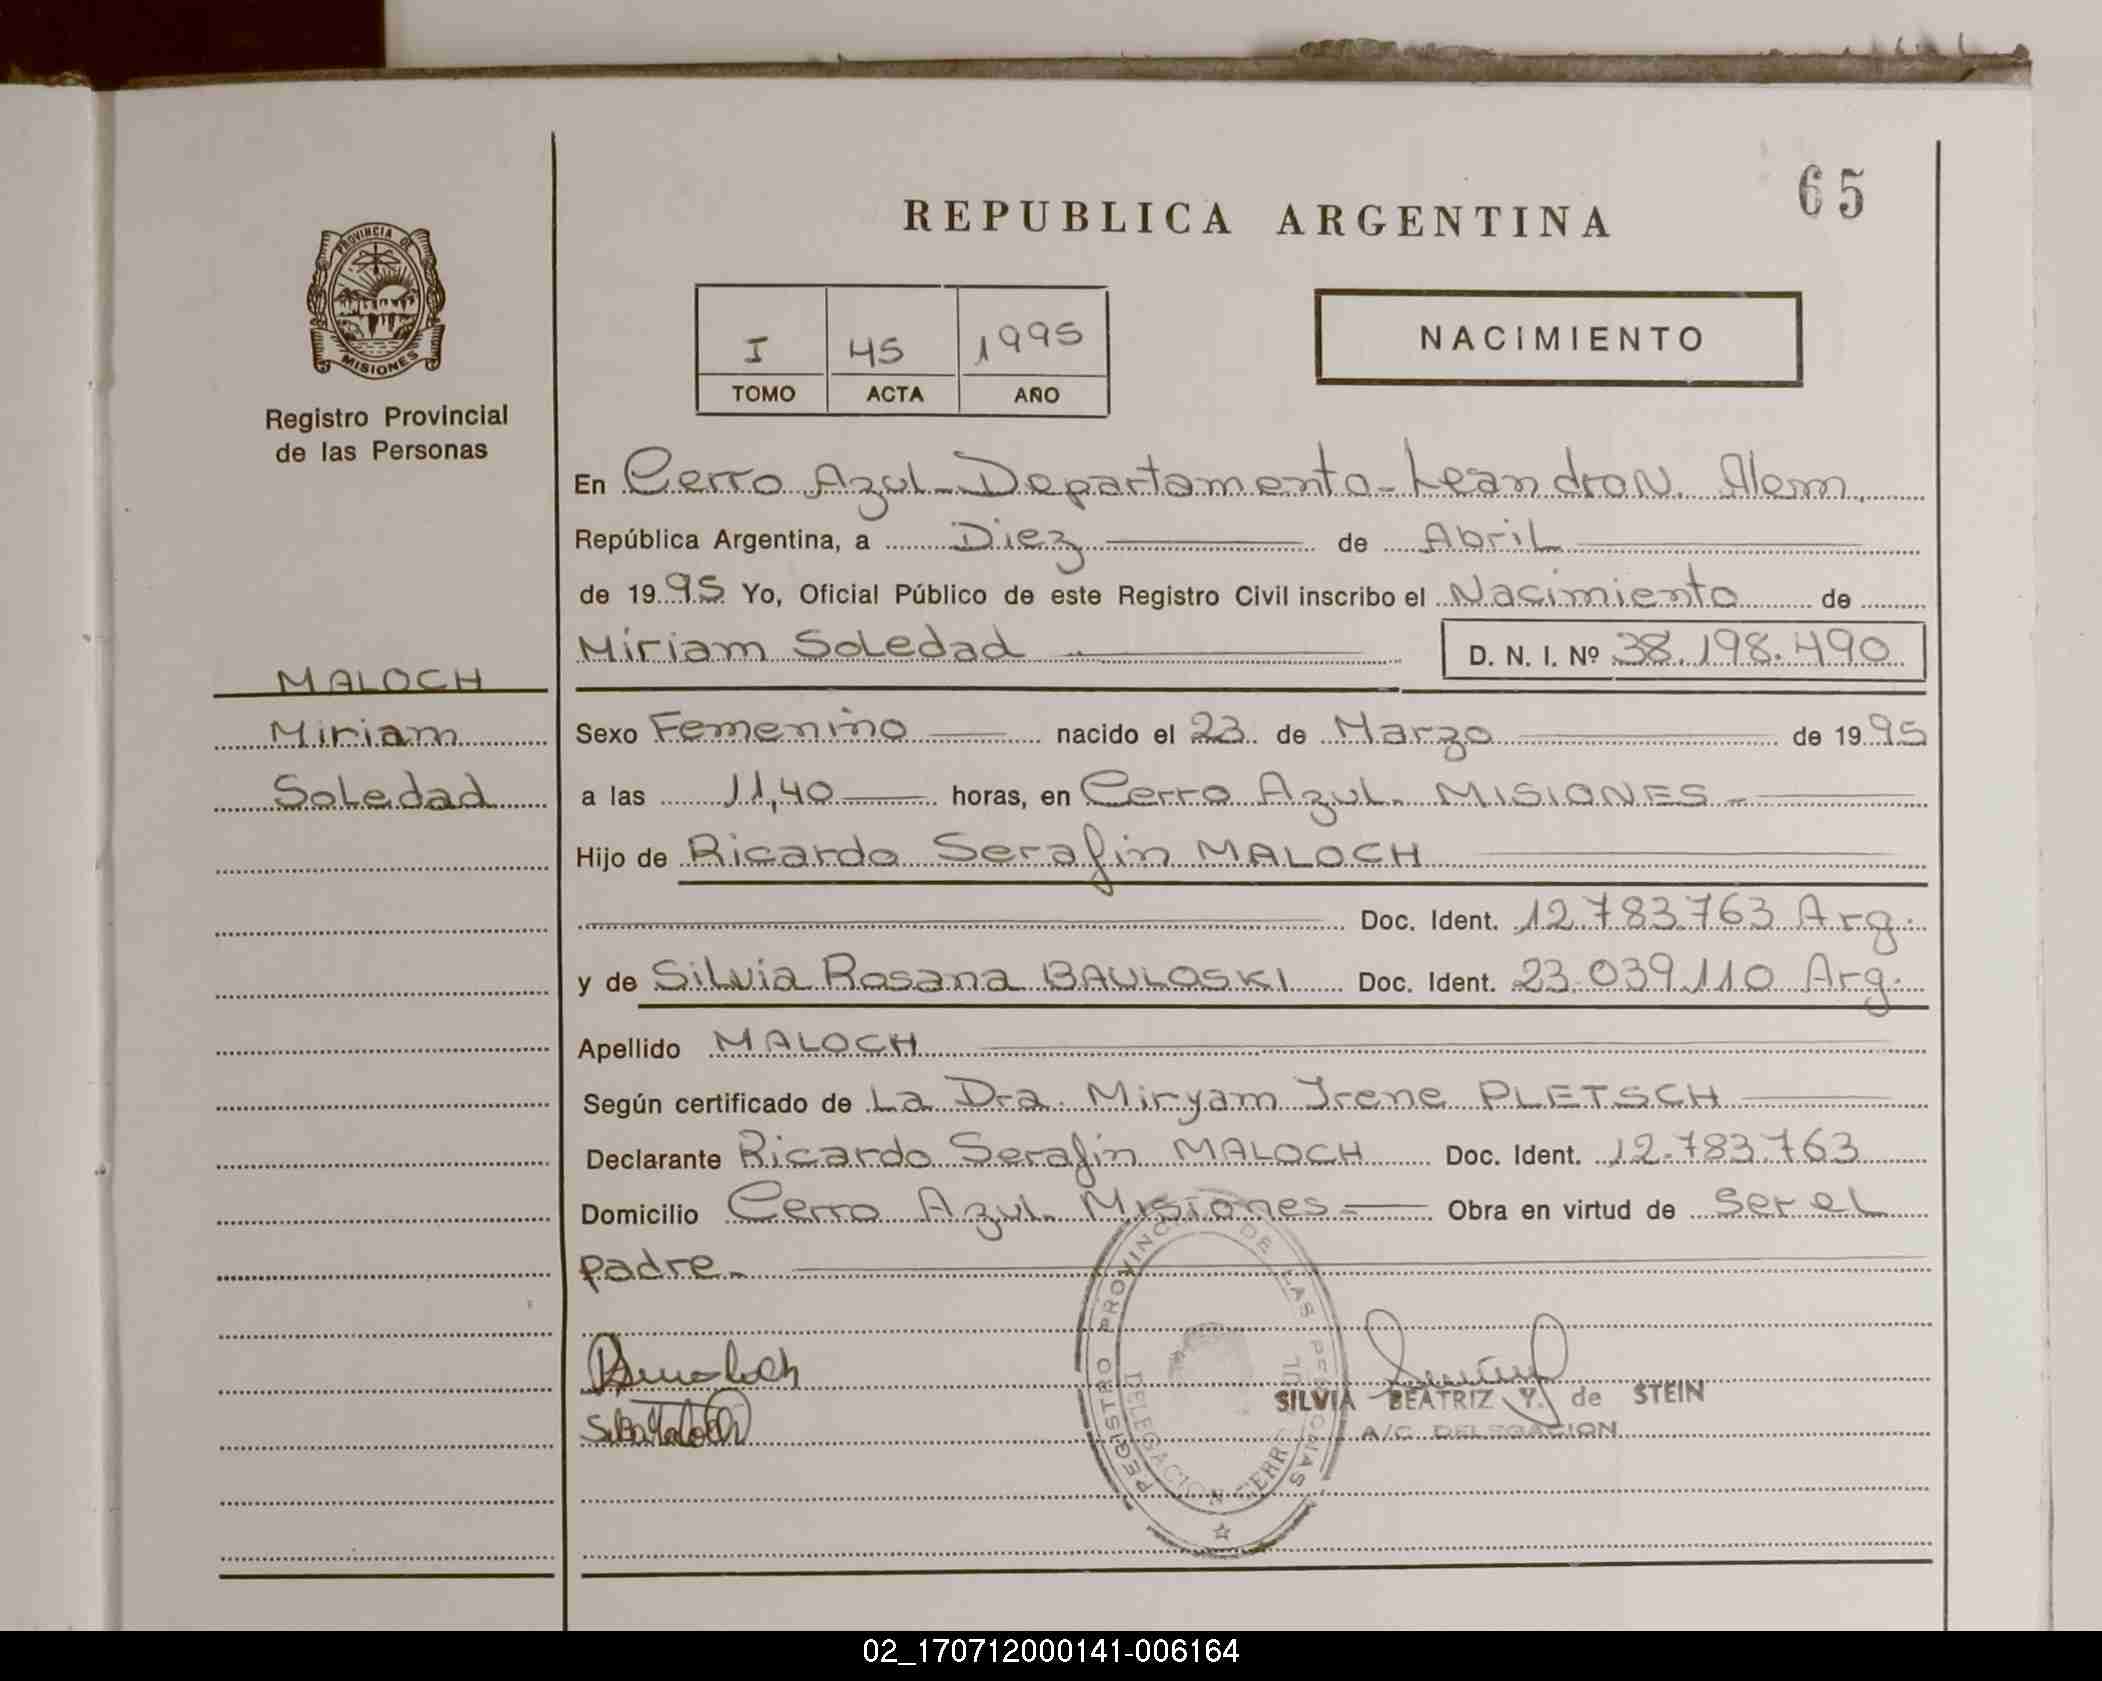 65
REPUBLICA ARGENTINA
PROVINCIA DE
MISIONES
Registro Provincial
de las Personas
I 45 1995
TOMO ACTA AÑO
NACIMIENTO
En Cerro Azul - Departamento - Leandro N. Alem.
República Argentina, a Diez de Abril
de 1995 Yo, Oficial Público de este Registro Civil inscribo el Nacimiento de
Miriam Soledad D. N. I. Nº 38.198.490
MALOCH
Miriam
Soledad
Sexo Femenino nacido el 23 de Marzo de 1995
a las 11,40 horas, en Cerro Azul - MISIONES -
Hijo de Ricardo Serafin MALOCH
Doc. Ident. 12.783.763 Arg.
y de Silvia Rosana BAULOSKI Doc. Ident. 23.039.110 Arg.
Apellido MALOCH
Según certificado de La Dra. Miryam Irene PLETSCH
Declarante Ricardo Serafin MALOCH Doc. Ident. 12.783.763
Domicilio Cerro Azul - Misiones - Obra en virtud de ser el
padre -
REGISTRO PROVINC DE LAS PERSONAS
DELEGACION CERR
SILVIA BEATRIZ Y. de STEIN
A/C DELEGACION
02_170712000141-006164